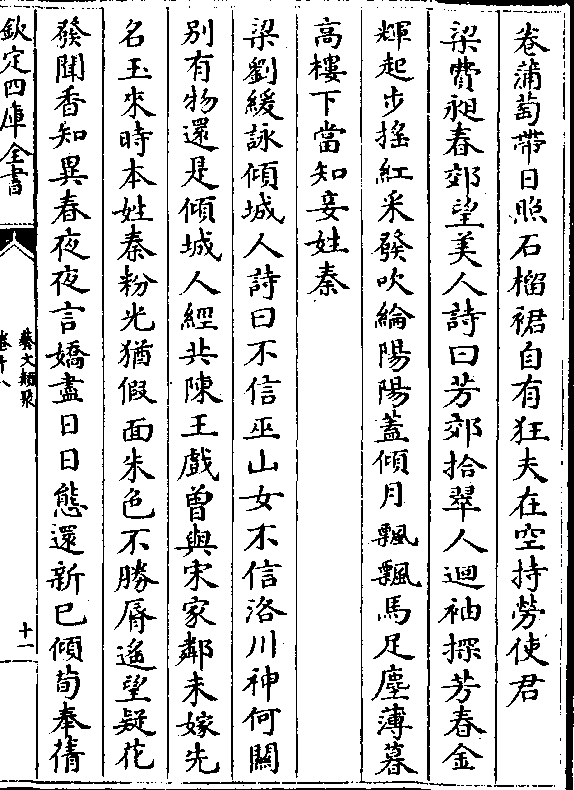 卷蒲萄帶日照石榴裙自有狂夫在空持勞使君
梁費昶春郊望美人詩曰芳郊拾翠人迴袖探芳春金
輝起步搖紅采發吹綸陽陽蓋傾月飄飄馬足塵薄暮
高樓下當知妾姓秦
梁劉緩詠傾城人詩曰不信巫山女不信洛川神何關
別有物還是傾城人經共陳王戲曾與宋家鄰未嫁先
名玉來時本姓秦粉光猶假面朱色不勝脣遙望疑花
發聞香知異春夜夜言嬌盡日日態還新已傾荀奉倩
欽定四庫全書
藝文類聚
卷十八
十一